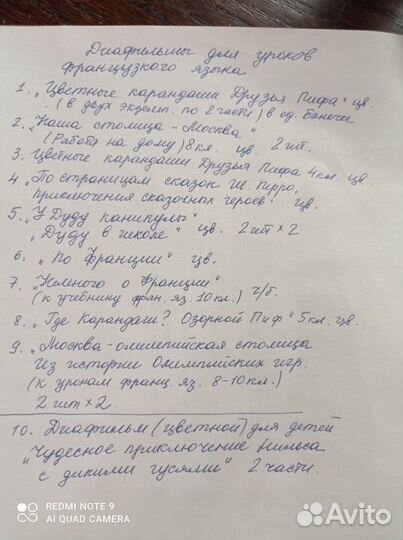 Диафильмы для уроков
французкого языка
1. „Цветные карандаши Друзья Пифа" цв.
(в двух экземп. по 2 части) в од. баночке
2. „Наша столица - Москва"
(Работа на дому) 8 кл. цв. 2 шт.
3. Цветные карандаши Друзья Пифа 4 кл. цв.
4 „По страницам сказок Ш. Перро,
Приключения сказочных героев" цв.
5. „У Дуду каникулы"
„Дуду в школе" цв. 2 шт x 2
6. „По Франции" цв.
7. „Немного о Франции"
(к учебнику фран. яз. 10 кл.) ч/б.
8. „Где Карандаш? Озорной Пиф" 5 кл. цв.
9. „Москва - олимпийская столица
Из истории Олимпийских игр.
(к урокам франц. яз. 8-10 кл.)
2 шт x 2.
10. Диафильм (цветной) для детей
„Чудесное приключение Нильса
с дикими гусями" 2 части.
REDMI NOTE 9
AI QUAD CAMERA
Avito